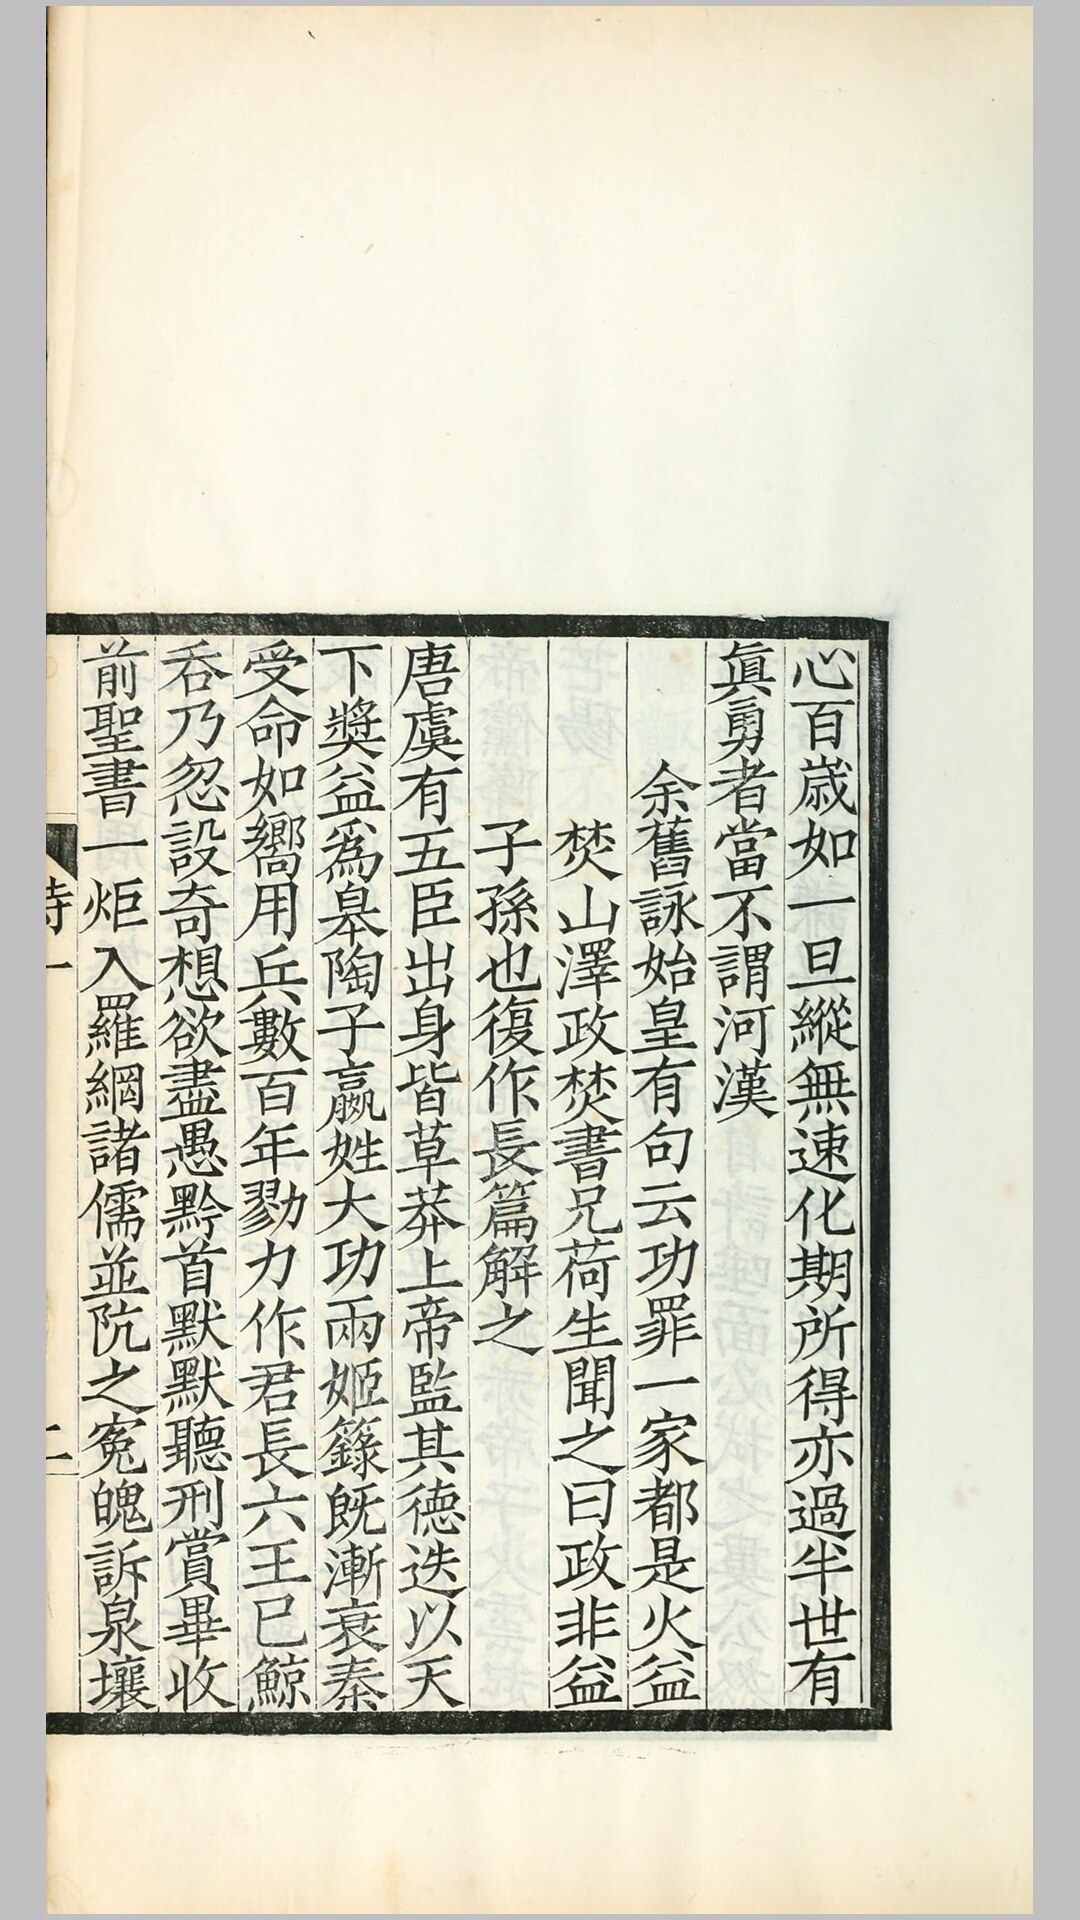 心百歳如一旦縱無速化期所得亦過半世有
眞勇者當不謂河漢
余舊詠始皇有句云功罪一家都是火益
焚山澤政焚書兄荷生聞之曰政非益
子孫也復作長篇解之
唐虞有五臣出身皆草莽上帝監其德迭以天
下獎益爲皋陶子嬴姓大功兩姬籙既漸衰秦
受命如嚮用兵數百年勠力作君長六王已鯨
吞乃忽設奇想欲盡愚黔首默默聽刑賞畢收
前聖書一炬入羅網諸儒並阬之寃魄訴泉壤
詩一
二